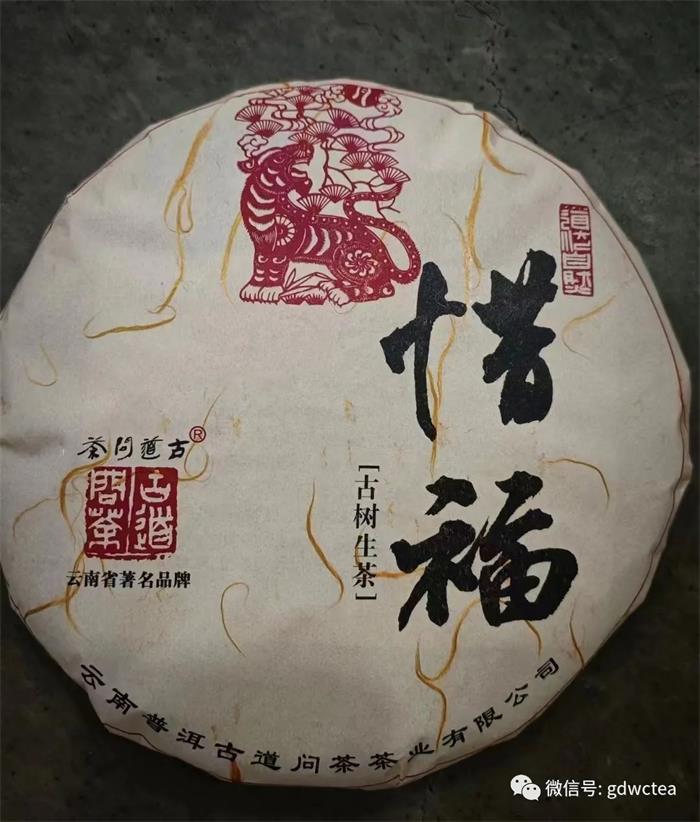 惜福
[古树生茶]
古道问茶®
古道问茶
云南省著名品牌
云南普洱古道问茶茶业有限公司
微信号: gdwctea